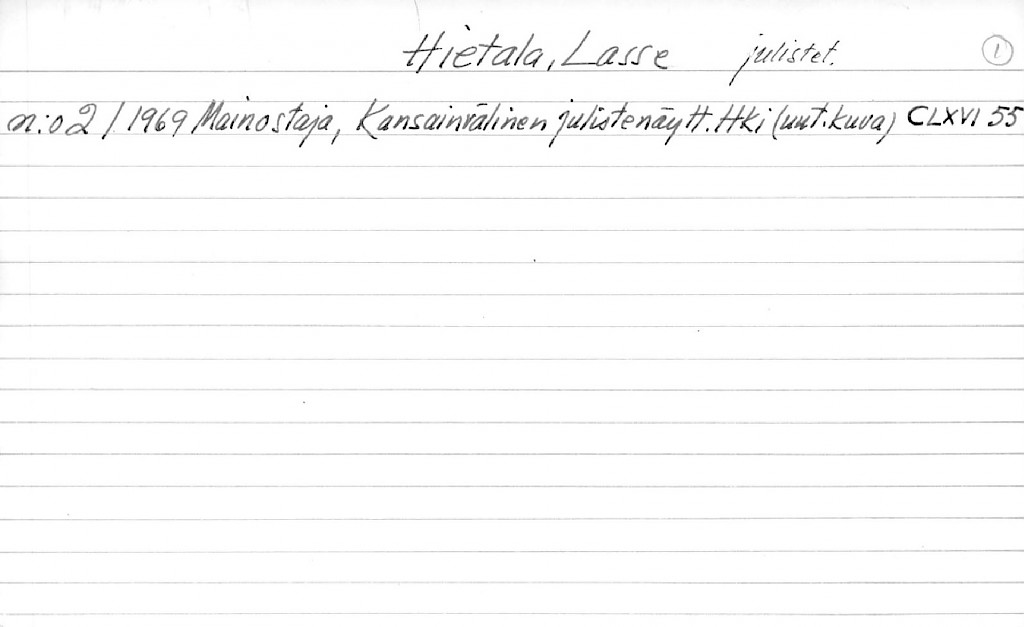 Hietala, Lasse julistet. 1
n:o 2 / 1969 Mainostaja, Kansainvälinen julistenäytt. Hki (uut.kuva) CLXVI 55